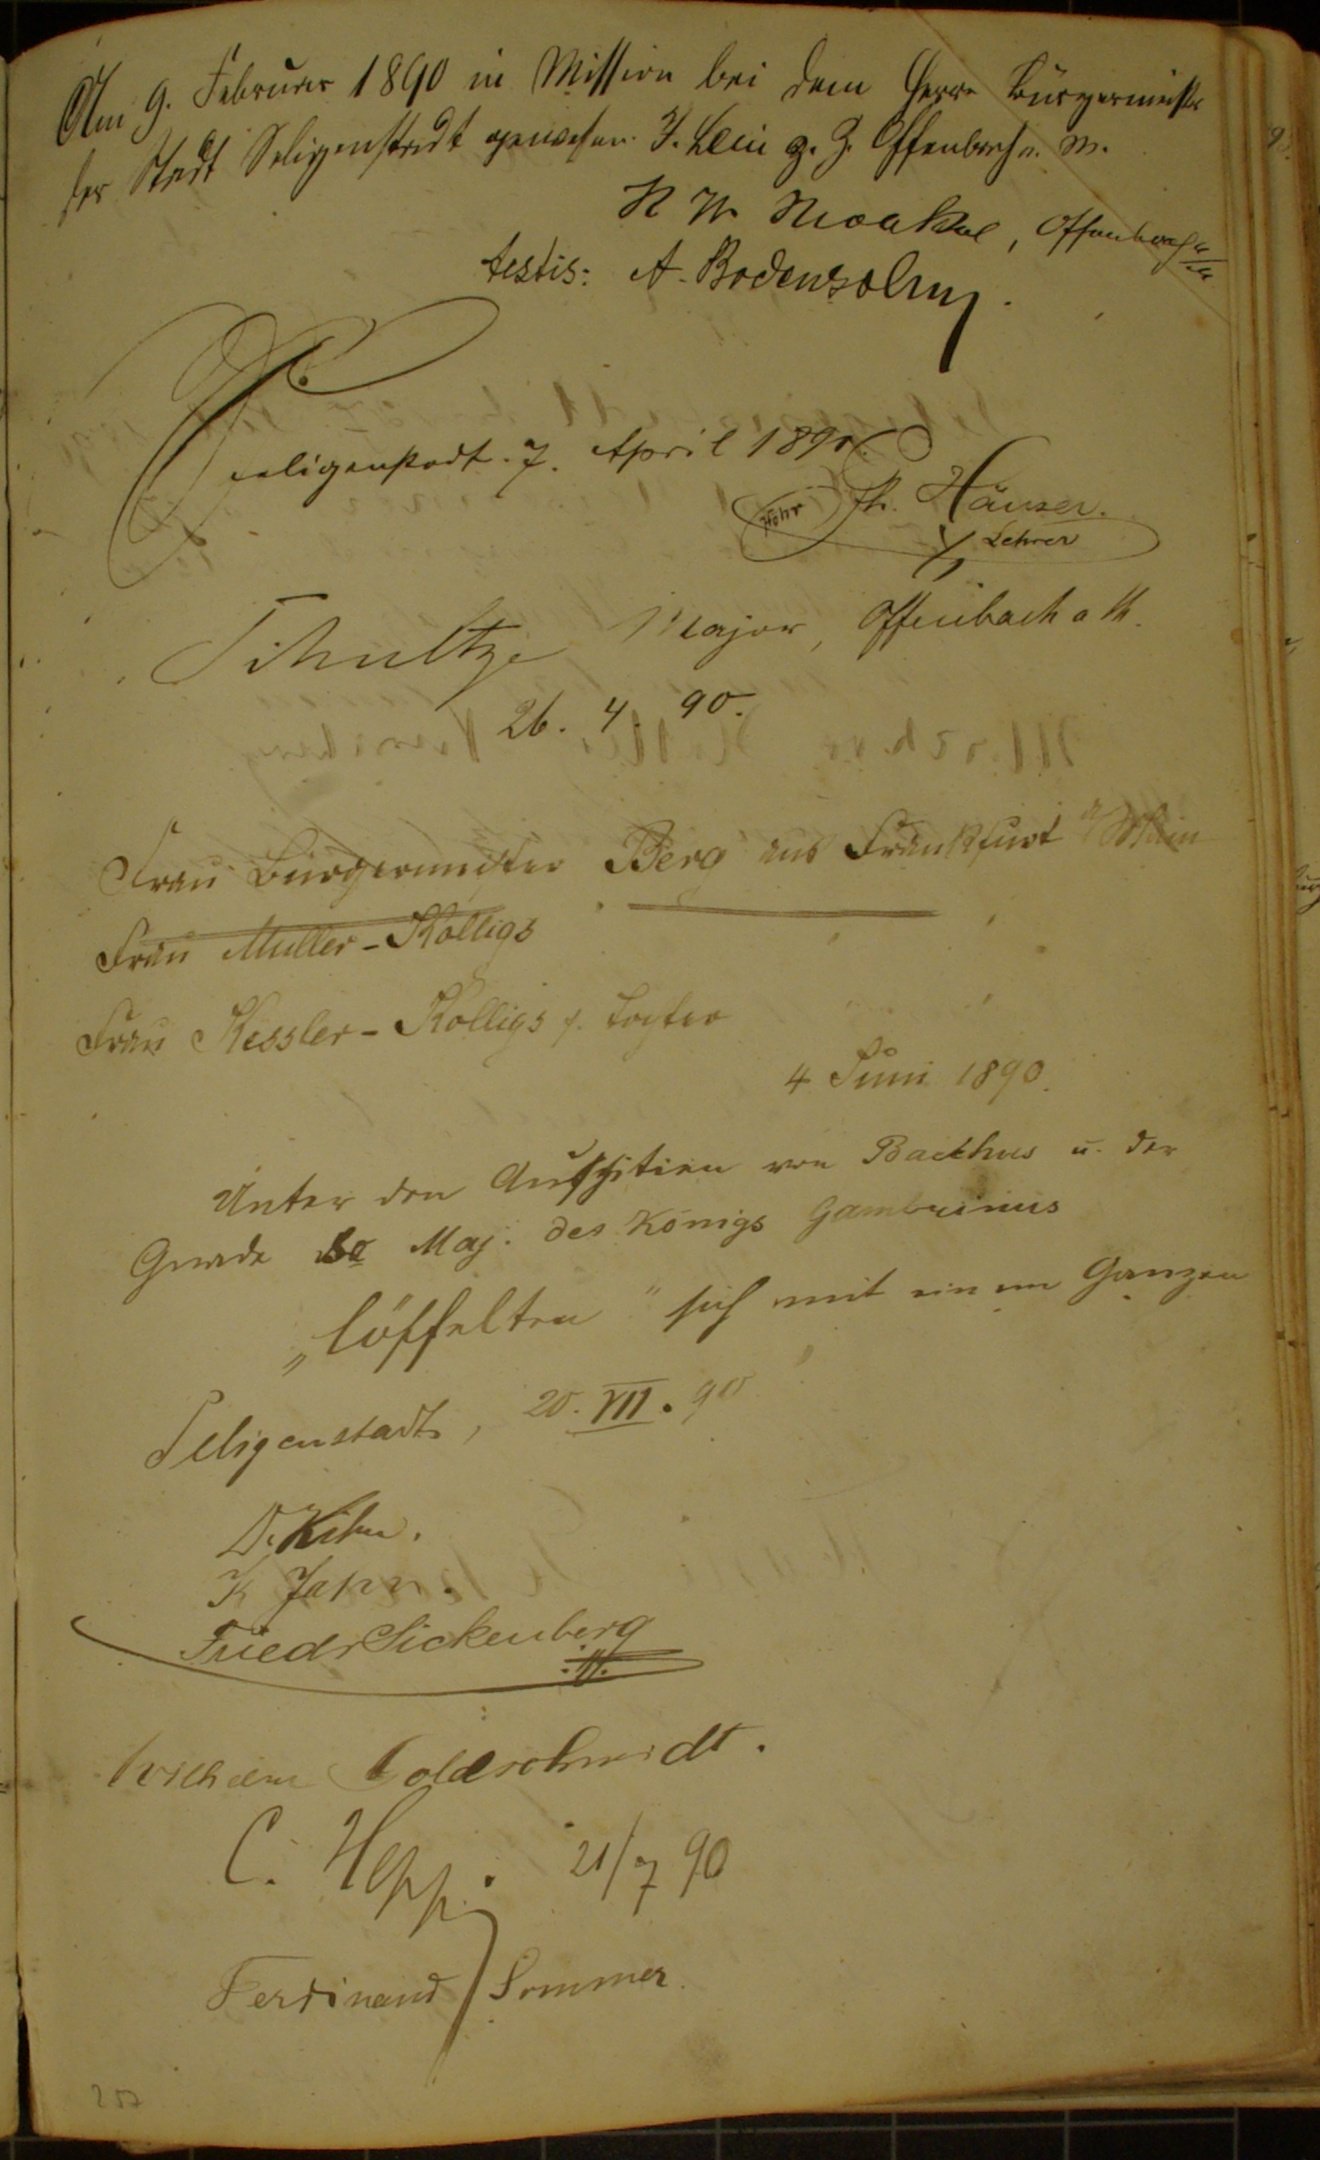 Am 9. Februar 1890 in Mission bei dem Herrn Bürgermeister
der Stadt Seligenstadt gewesen. J. Lein z. Z. Offenbach a. M.
Offenbach a/M
testis: A.
Seligenstadt. 7. April 1890.
Häuser.
Lehrer
Schultze Major, Offenbach a M.
26. 4. 90.
Frau Bürgermeister Berg aus Frankfurt a/Main
Frau Müller-Kolligs
Frau Kessler-Kolligs f. Tochter
4 Juni 1890.
Unter den Auspitien von Bacchus u. der
Gnade Sr Maj. des Königs Gambrinus
„löffelten" sich mit einem Ganzen
Seligenstadt, 20. VII. 90
K Japn.
Friedr Sickenberg
Wilhelm Goldschmidt.
C. Hepp. 21/7 90
Ferdinand Sommer.
257